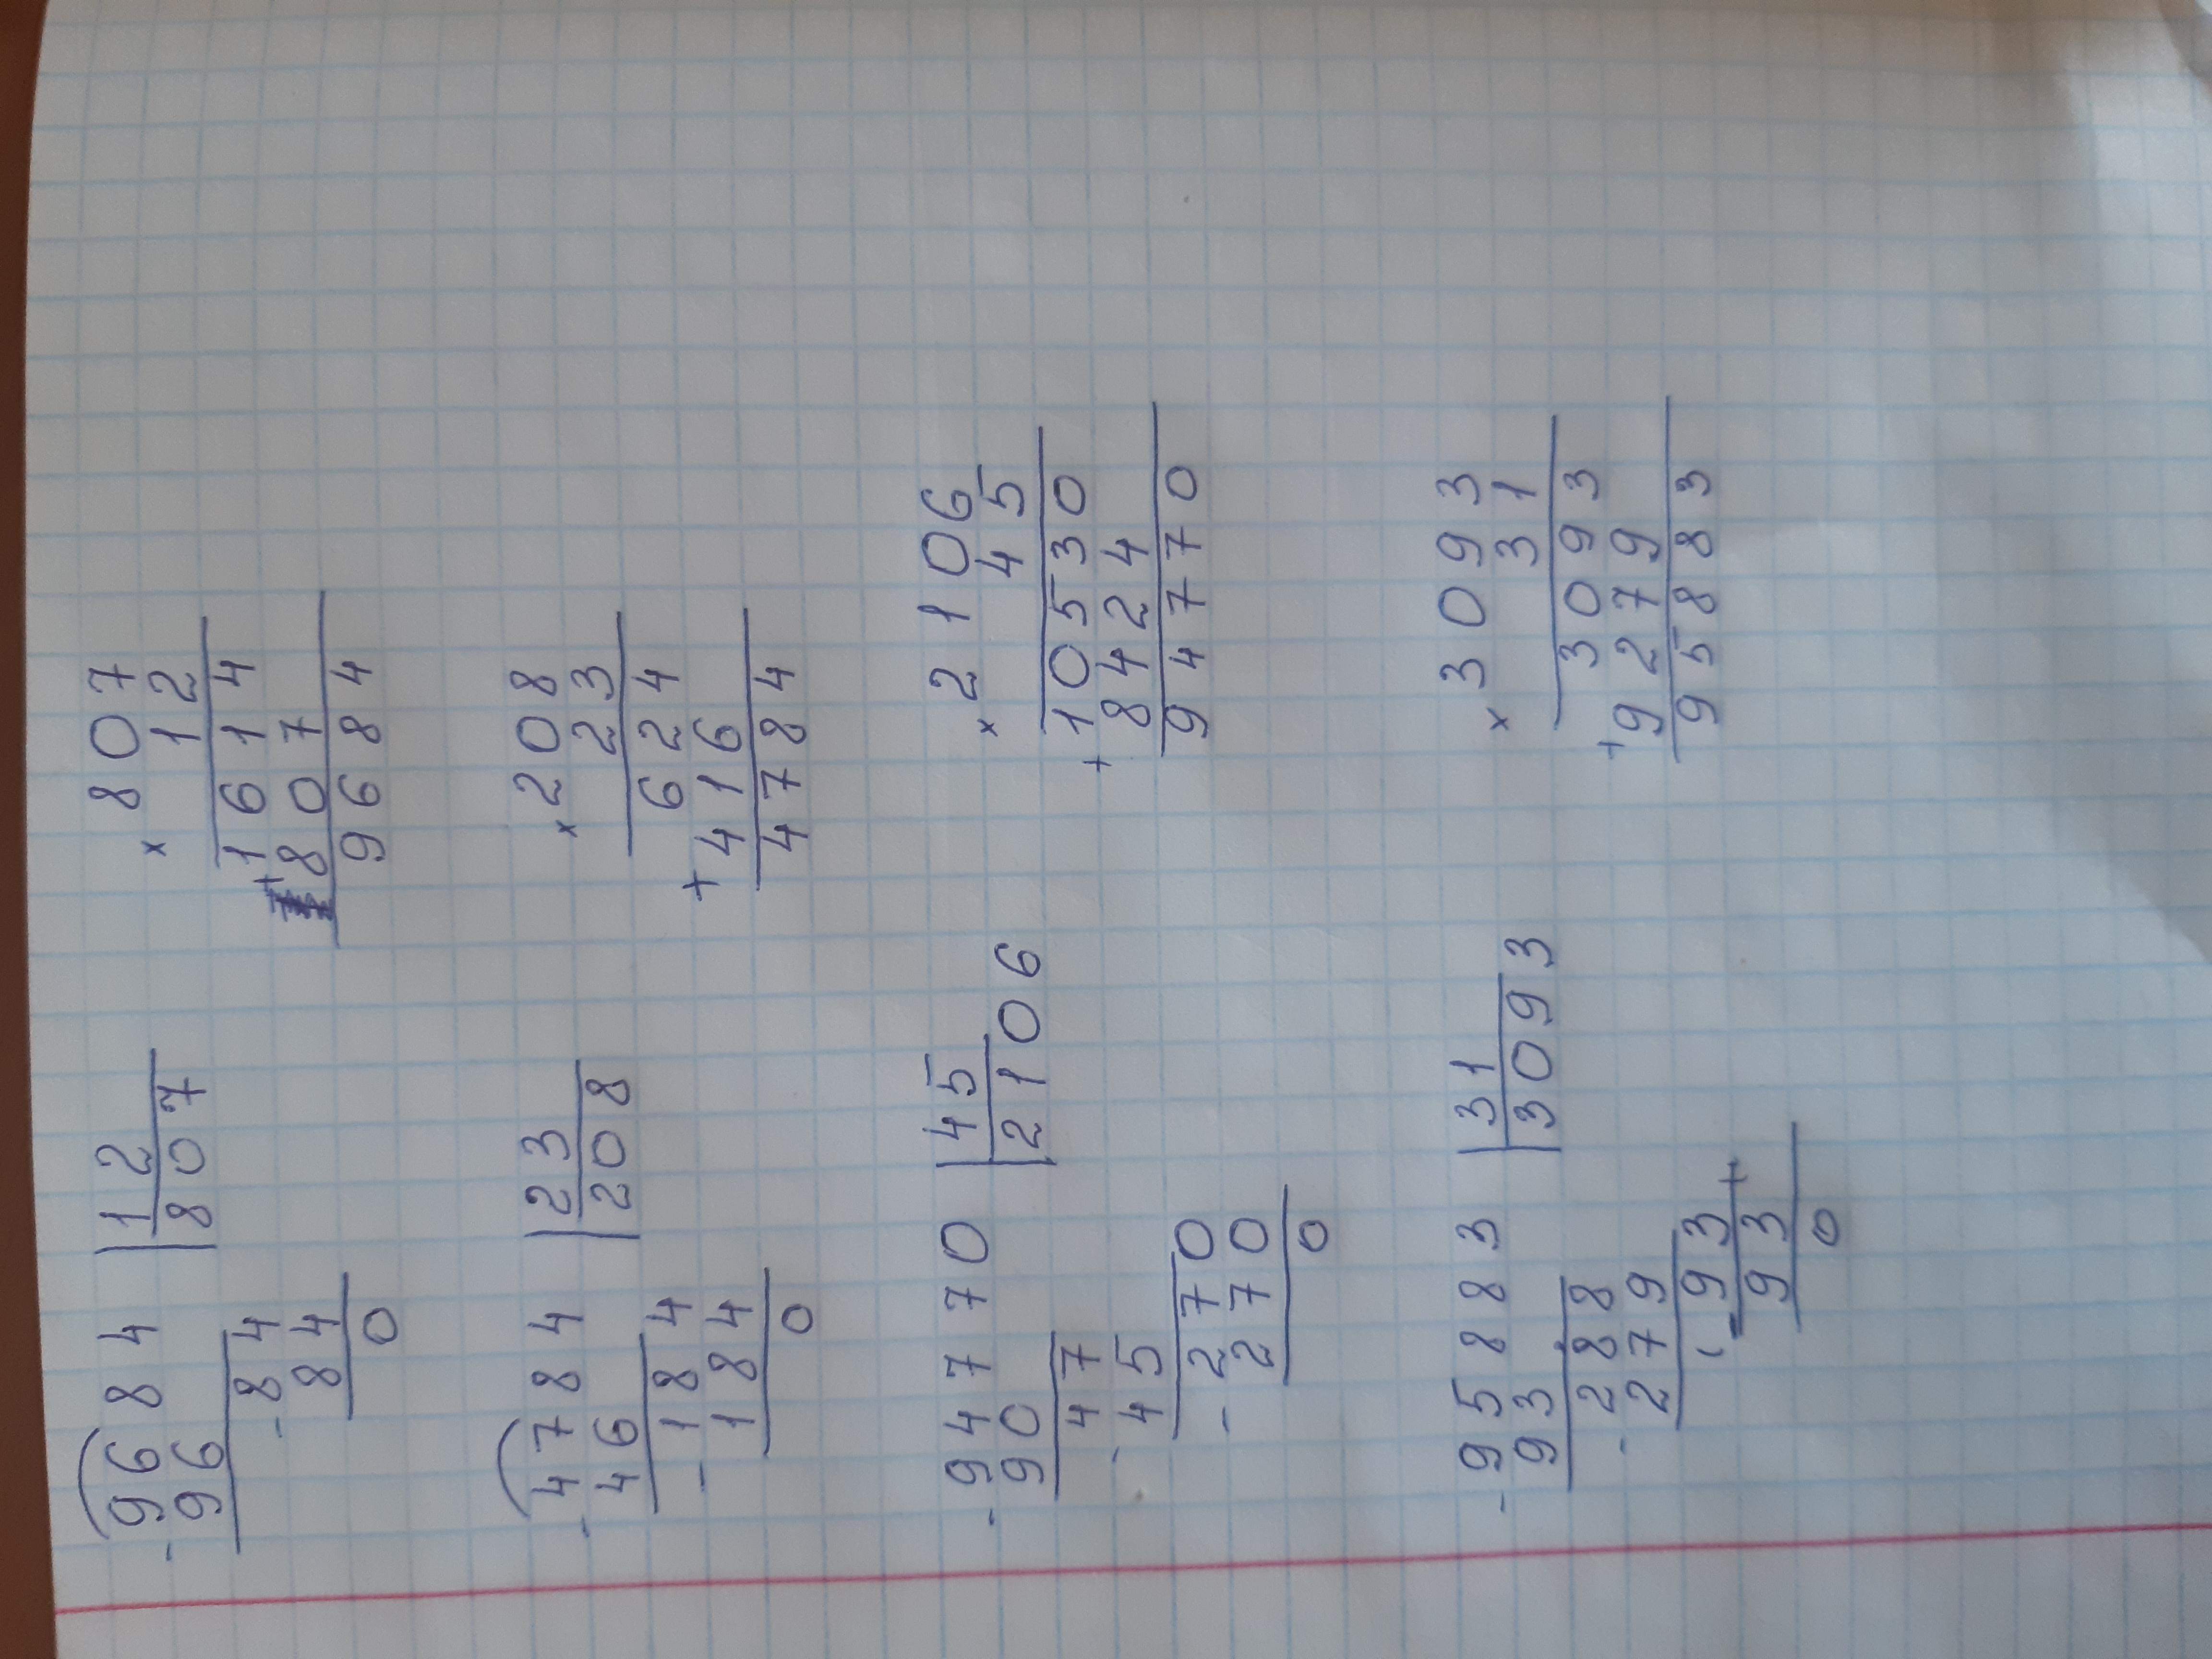 9684 | 12
- 96 | 807
- 84
84
0
× 807
12
1614
+ 807
9684
4784 | 23
- 46 | 208
- 184
184
0
× 208
23
624
+ 416
4784
- 94770 | 45
90 | 2106
47
- 45
- 270
270
0
× 2106
45
10530
+ 8424
94770
- 95883 | 31
93 | 3093
288
- 279
- 93
93
0
× 3093
31
3093
+ 9279
95883